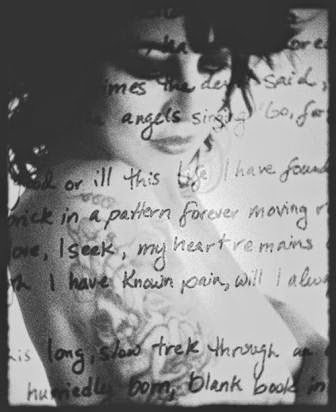 ore
imes the de said,
angels singing "Go, for
or ill this life I have found
rick in a pattern forever moving
ove, I seek, my heart remains
I have known pain, will I alw
his long, slow trek through an
hurriedly born, blank book in